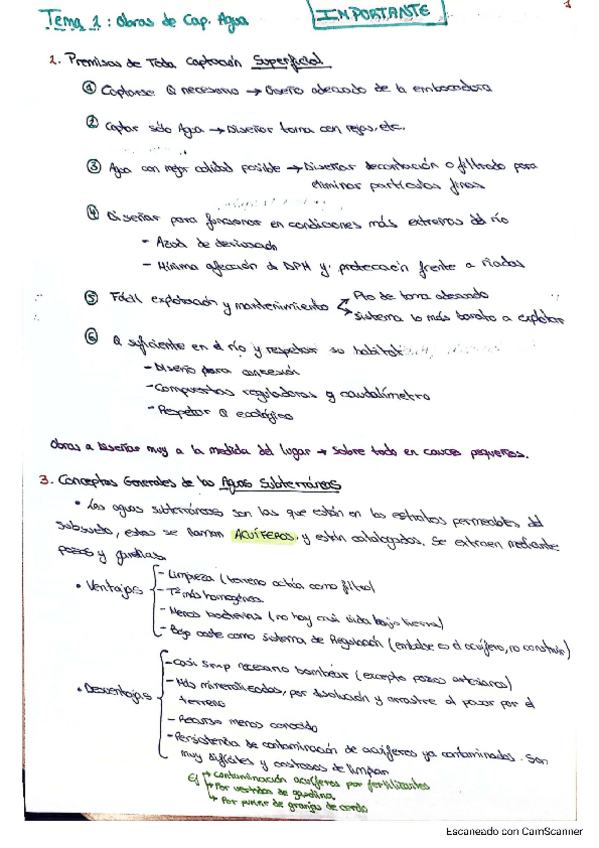 Tema 1: Obras de Cap. Agua
IMPORTANTE
1
2. Premisas de Toda Captación Superficial
① Captarse Q necesario → Diseño adecuado de la embocadura
② Captar sólo Agua → Diseñar toma con rejas, etc.
③ Agua con mejor calidad posible → Diseñar decantación o filtrado para
eliminar partículas finas
④ Diseñar para funcionar en condiciones más extremas del río
- Azud de derivación
- Mínima afección a DPH y protección frente a riadas
⑤ Fácil explotación y mantenimiento
Pto de toma adecuado
sistema lo más barato a explotar
⑥ Q suficiente en el río y respetar su habitat
- Diseño para concesión
- Compuertas reguladoras y caudalímetro
- Respetar Q ecológico
Obras a Diseñar muy a la medida del lugar → Sobre todo en cauces pequeños.
3. Conceptos Generales de las Aguas Subterráneas
• Las aguas subterráneas son las que están en los estratos permeables del
subsuelo, estas se llaman ACUÍFEROS, y están catalogados. Se extraen mediante
pozos y galerías.
• Ventajas
- Limpieza (terreno actúa como filtro)
- Tª más homogénea.
- Menos bacterias (no hay casi vida bajo tierra)
- Bajo coste como sistema de Regulación (embalse es el acuífero, no construir)
• Desventajas
- Casi smp necesario bombear (excepto pozos artesianos)
- Más mineralizadas, por disolución y arrastre al pasar por el
terreno
- Recurso menos conocido
- Persistencia de contaminación de acuíferos ya contaminados. Son
muy difíciles y costosas de limpiar
Ej → contaminación acuíferos por fertilizantes
→ Por vertidos de gasolina.
→ Por purines de granjas de cerdo
Escaneado con CamScanner